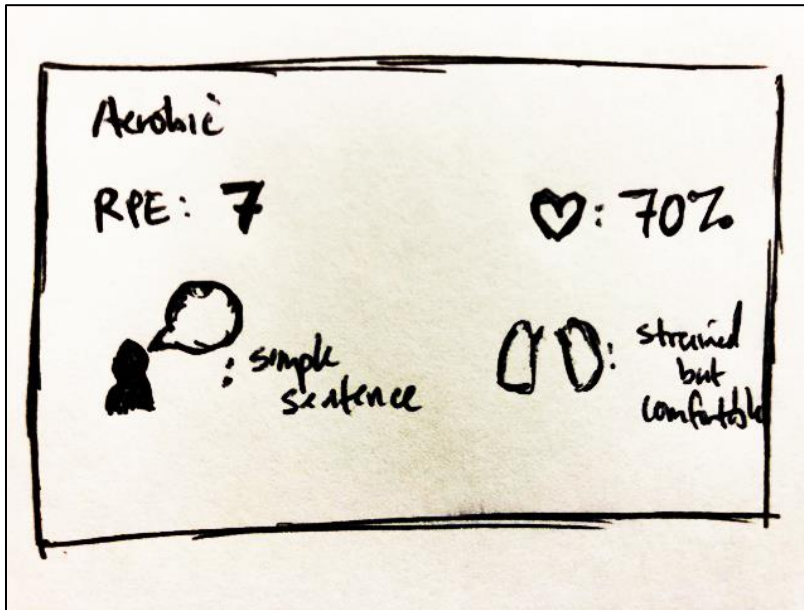 Aerobic
RPE: 7
: 70%
: simple
sentence
: strained
but
comfortable